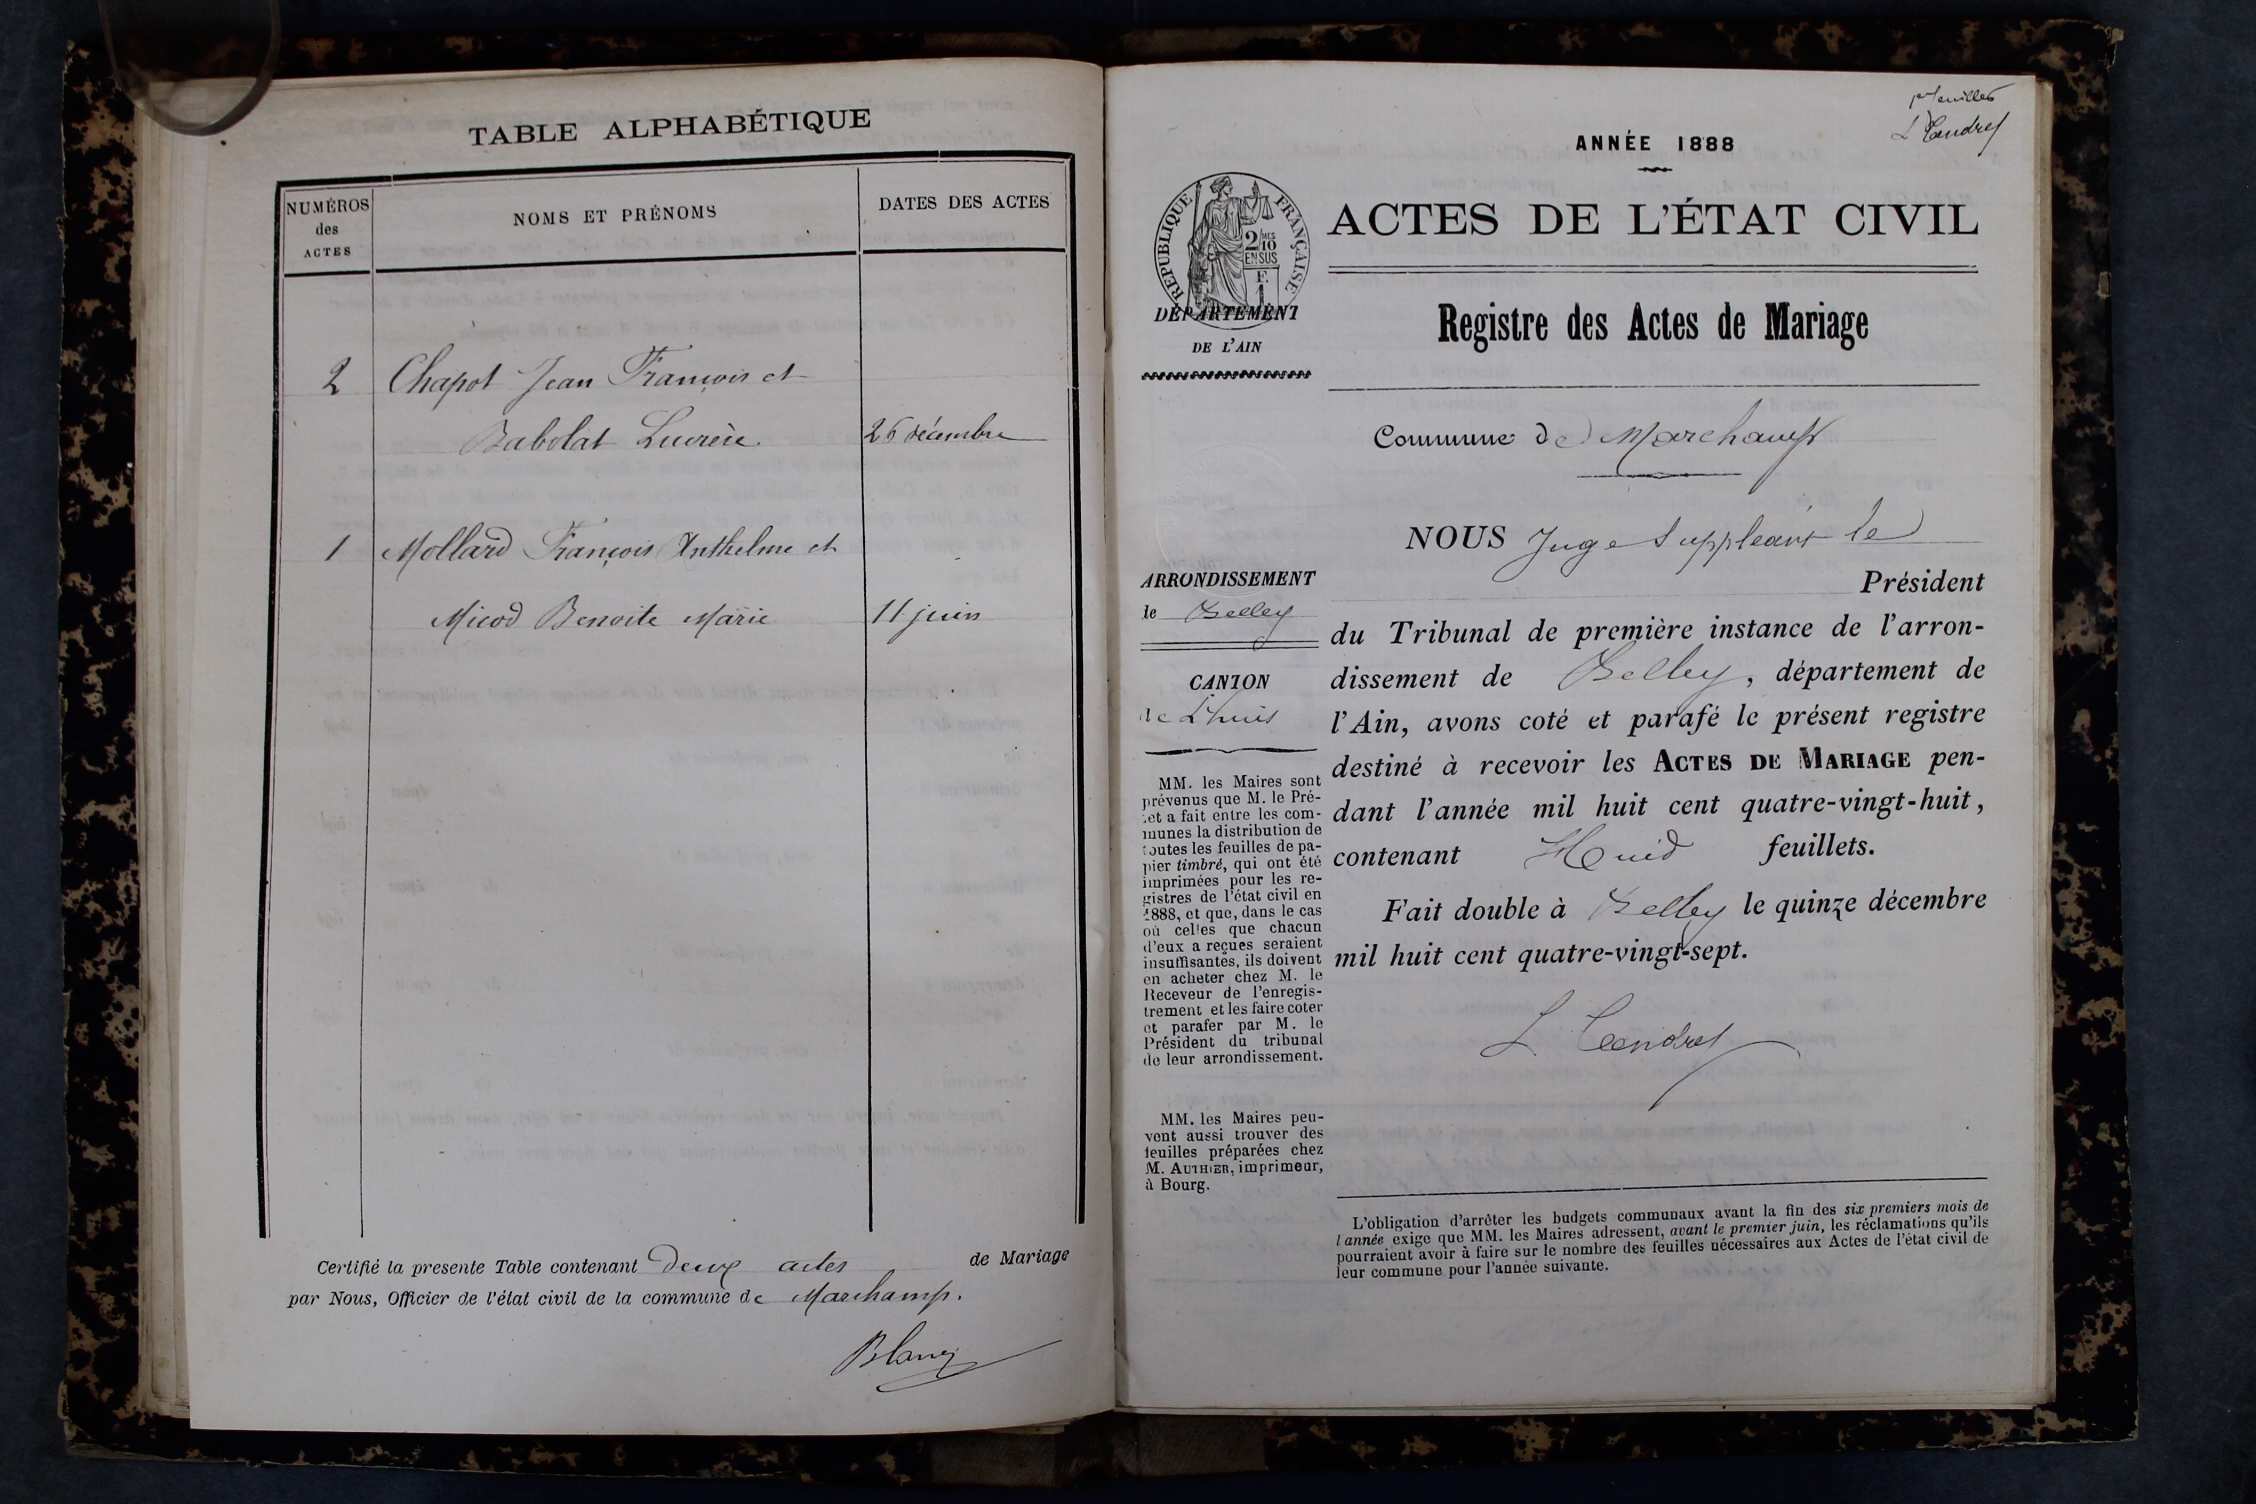 TABLE ALPHABÉTIQUE
NUMÉROS
des
ACTES
NOMS ET PRÉNOMS
DATES DES ACTES
2 Chapot Jean François et
Babolat Lucrèce 26 décembre
1 Mollard François Anthelme et
Micod Benoite Marie 11 juin
Certifié la presente Table contenant deux actes de Mariage
par Nous, Officier de l'état civil de la commune de Marchamp.
Blanc
1er feuillet
L Tendret
ANNÉE 1888
RÉPUBLIQUE FRANÇAISE
2/10 MES
EN SUS
F.
1
DÉPARTEMENT
DE L'AIN
ACTES DE L'ÉTAT CIVIL
Registre des Actes de Mariage
Commune de Marchamp
ARRONDISSEMENT
de Belley
CANTON
de Lhuis
MM. les Maires sont
prévenus que M. le Pré-
fet a fait entre les com-
munes la distribution de
toutes les feuilles de pa-
pier timbré, qui ont été
imprimées pour les re-
gistres de l'état civil en
1888, et que, dans le cas
où celles que chacun
d'eux a reçues seraient
insuffisantes, ils doivent
en acheter chez M. le
Receveur de l'enregis-
trement et les faire coter
et parafer par M. le
Président du tribunal
de leur arrondissement.
MM. les Maires peu-
vent aussi trouver des
feuilles préparées chez
M. AUTHIER, imprimeur,
à Bourg.
NOUS Juge Suppléant le
Président
du Tribunal de première instance de l'arron-
dissement de Belley, département de
l'Ain, avons coté et parafé le présent registre
destiné à recevoir les ACTES DE MARIAGE pen-
dant l'année mil huit cent quatre-vingt-huit,
contenant feuillets.
Fait double à Belley le quinze décembre
mil huit cent quatre-vingt-sept.
L. Tendret
L'obligation d'arrêter les budgets communaux avant la fin des six premiers mois de
l'année exige que MM. les Maires adressent, avant le premier juin, les réclamations qu'ils
pourraient avoir à faire sur le nombre des feuilles nécessaires aux Actes de l'état civil de
leur commune pour l'année suivante.